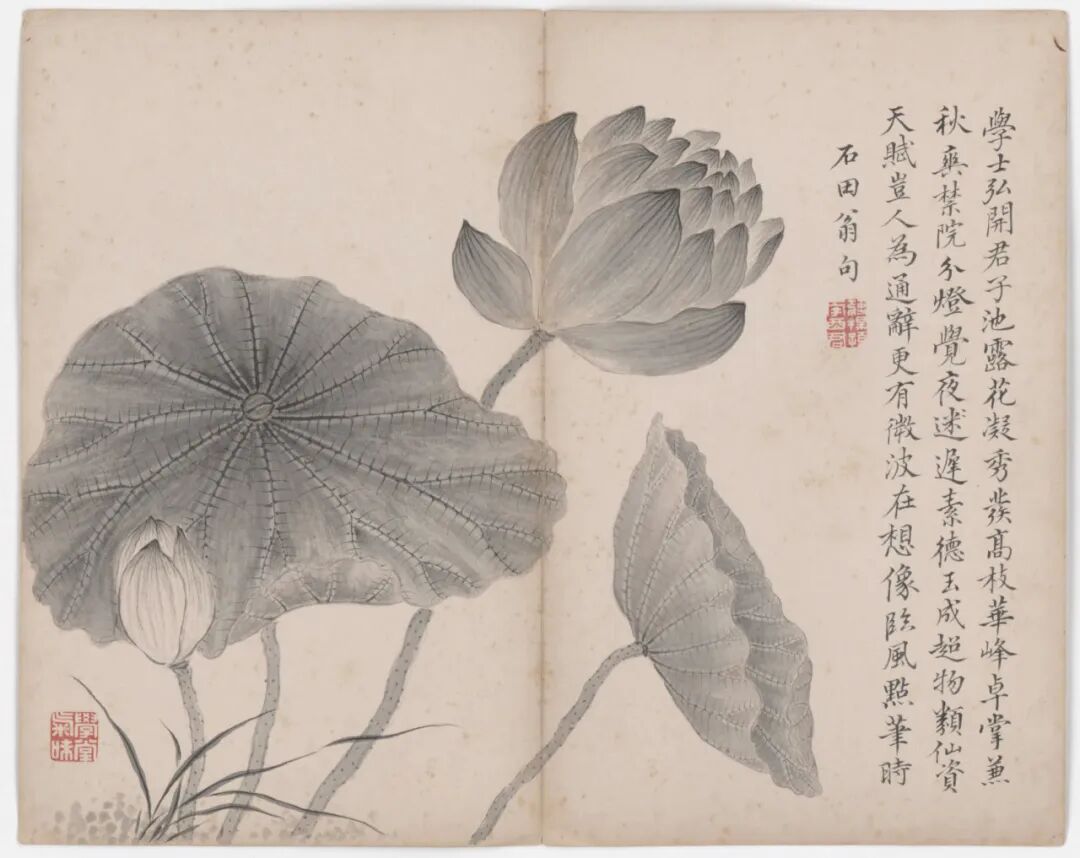 學士弘開君子池露花凝秀發高枝華峰卓掌兼
秋爽禁院分燈覺夜迷遲素德玉成超物類仙資
天賦豈人為通辭更有微波在想像臨風點筆時
石田翁句
學堂氣味